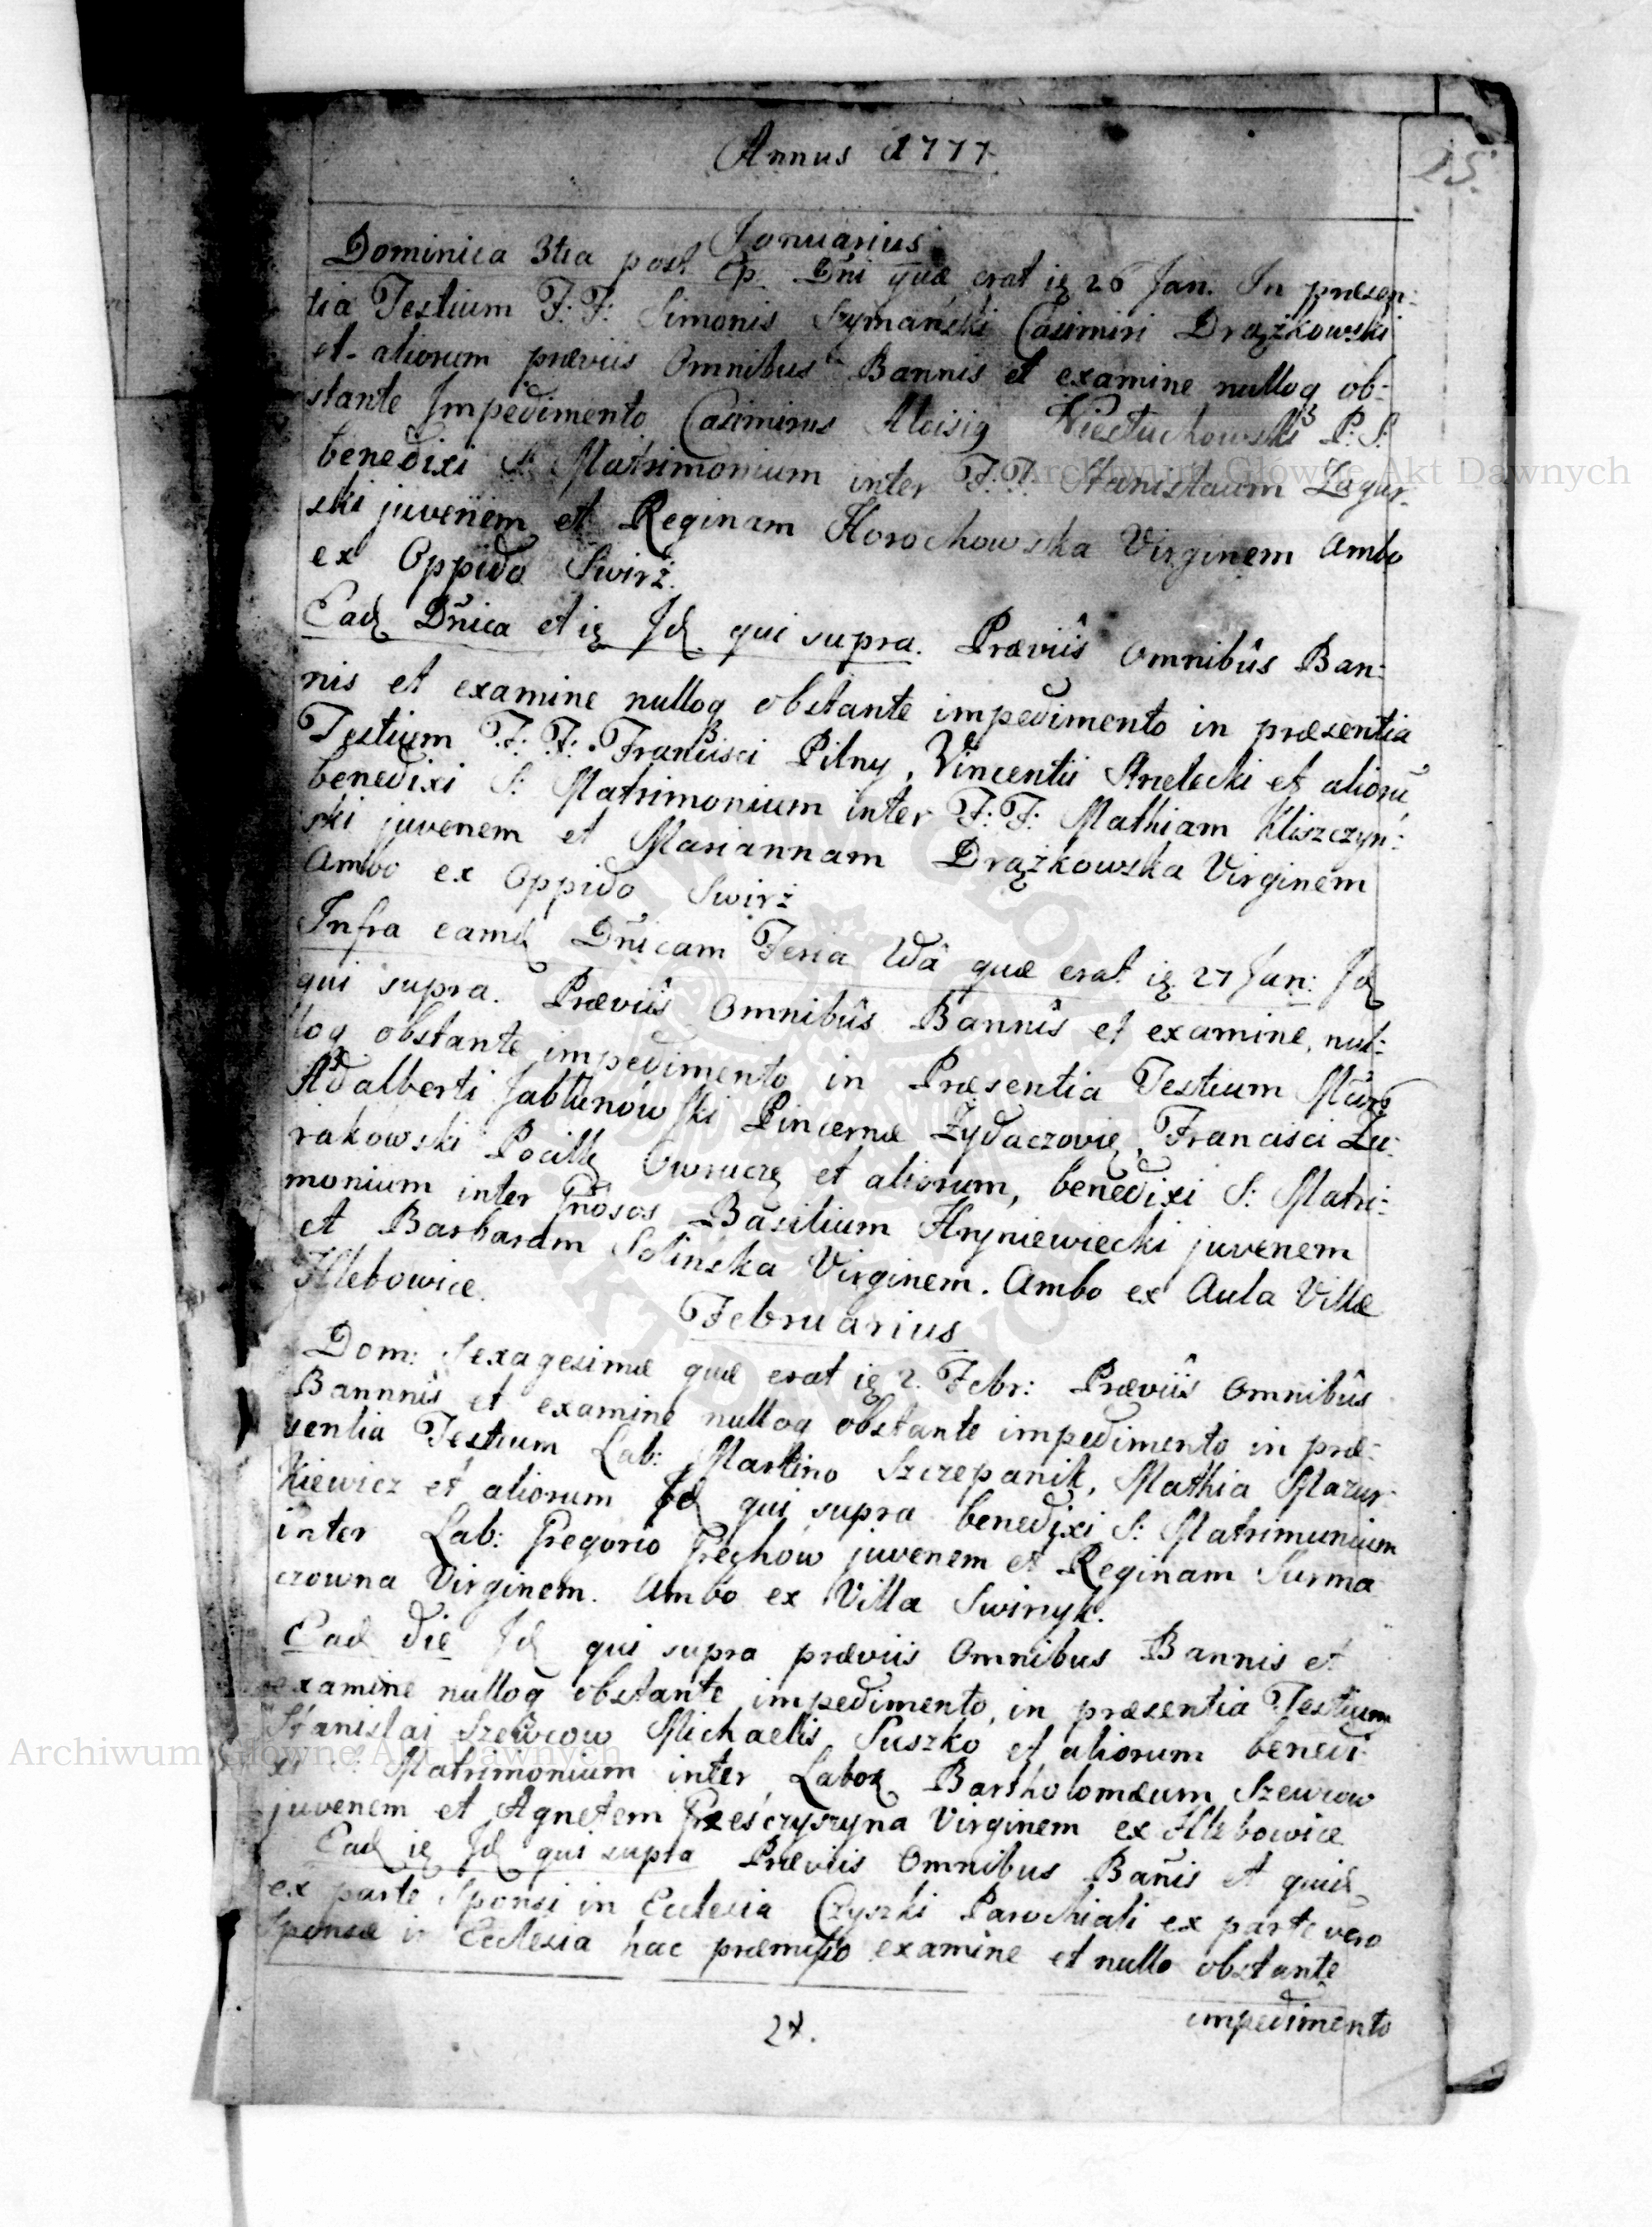 Annus 1777
15.
Januarius
Dominica 3tia post Ep. Dni quæ erat ię 26 Jan. In præsen:
tia Testium F: F: Simonis Szymański Casimiri Drążkowski
et aliorum præviis Omnibus Bannis et examine nulloq ob:
stante Impedimento Casimirus Aloisiq P: S:
benedixi S: Matrimonium inter F: F: Stanislaum Zagur:
ski juvenem et Reginam Horochowska Virginem Ambo
ex Oppido Swirż.
Eadȩ Dnica et ię Jdȩ qui supra. Præviîs Omnibûs Ban:
nis et examine nulloq obstante impedimento in præsentia
Testium F: F: Francisci Pilny, Vincentii Strzelecki et alioru
benedixi S: Matrimonium inter F: F: Mathiam Kliszczyń:
ski juvenem et Mariannam Drążkowska Virginem
Ambo ex Oppido Swirż
Infra eamdȩ Dnicam Feria IIdâ quæ erat ię 27 Jan: Jdȩ
qui supra. Præviîs Omnibûs Bannîs et examine, nul:
loq obstante impedimento in Præsentia Testium
Adalberti Jabłunowski Pincernæ Zydaczovię, Francisci Zu:
rakowski Pocillȩ Owruczȩ et aliorum, benedixi S: Matri:
monium inter Gnosos Basilium Hryniewiecki juvenem
et Barbaram Solinska Virginem. Ambo ex Aula Villæ
Hlebowice.
Februarius
Dom: Sexagesimæ quæ erat ię 2. Febr: Præviîs Omnibûs
Bannnîs et examine nulloq obstante impedimento in præ:
sentia Testium Lab: Martino Szczepanik, Mathia Mazur:
kiewicz et aliorum Jdȩ qui supra benedixi S: Matrimunium
inter Lab: Gregorio Greyhow juvenem et Reginam Surma
czowna Virginem. Ambo ex Villa Swirzyk.
Eadȩ die Jdȩ qui supra præviis Omnibus Bannis et
examine nulloq obstante impedimento, in præsentia Testium
Stanislai Szewcow Michaelis Suszko et aliorum benedi:
xi S: Matrimonium inter Labor Bartholomæum Szewcow
juvenem et Agnetem Grześczyszyna Virginem ex Hlebowice
Eadȩ ię Jdȩ qui supra Præviis Omnibus Banis et quidȩ
ex parte Sponsi in Ecclesia Czyszki Parochiali ex parte vero
Sponsæ in Ecclesia hac præmisso examine et nullo obstante
impedimento
24.
Archiwum Główne Akt Dawnych
Archiwum Główne Akt Dawnych
ARCHIWUM GŁÓWNE AKT DAWNYCH